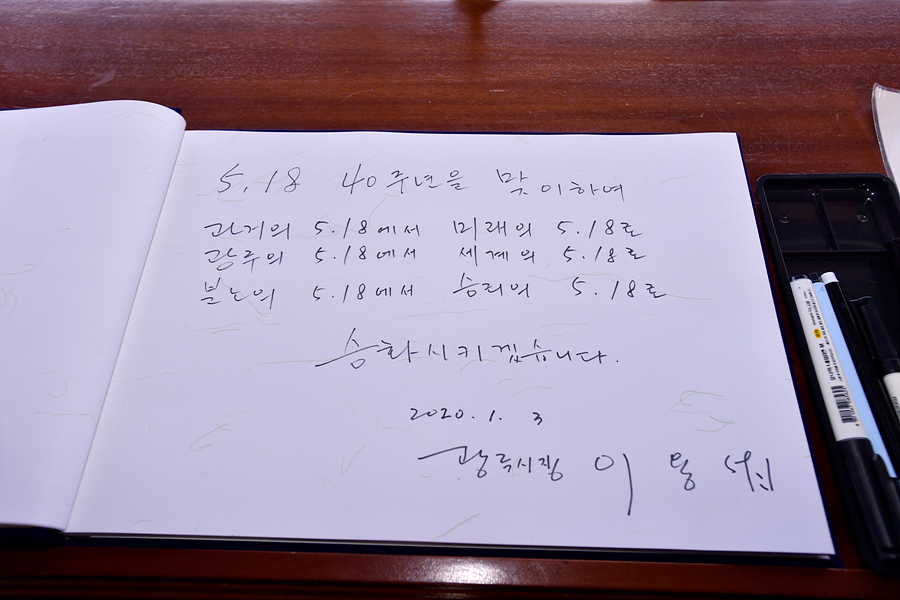 5.18 40주년을 맞이하여
과거의 5.18에서 미래의 5.18로
광주의 5.18에서 세계의 5.18로
분노의 5.18에서 승리의 5.18로
승화시키겠습니다.
2020. 1. 3
광주시장 이용섭